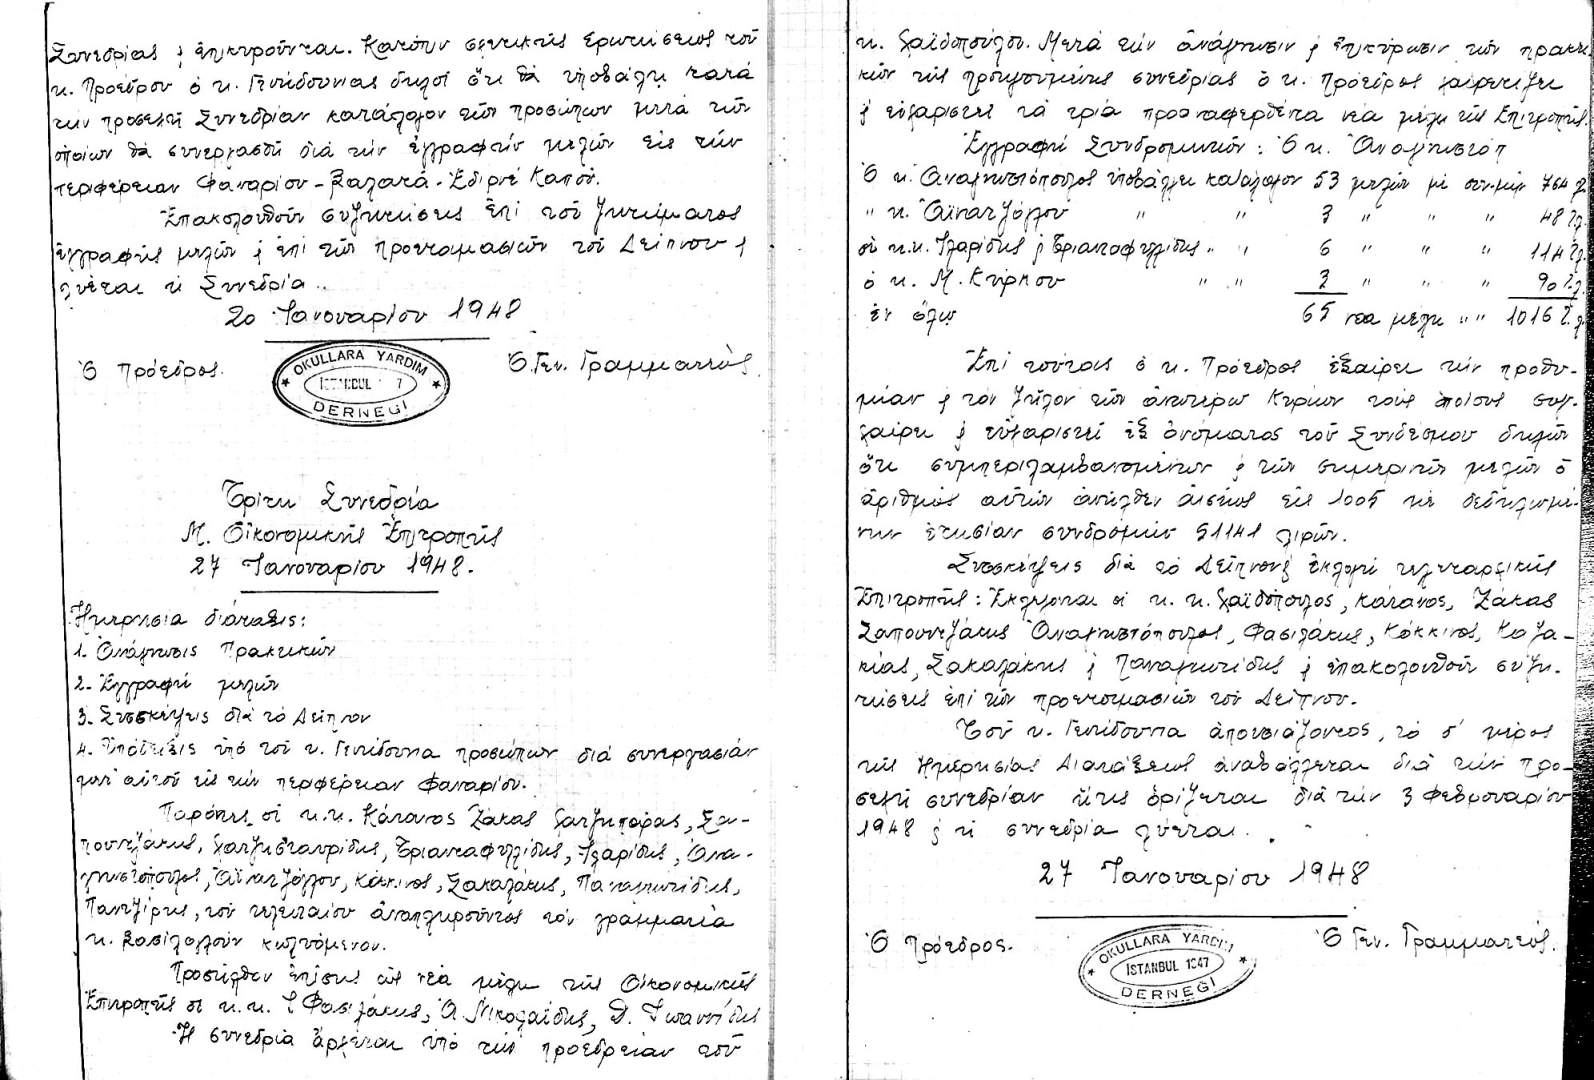 Συνεδρίας ϗ ἐπικυροῦνται. Κατόπιν σχετικῆς ἐρωτήσεως τοῦ
κ. Προέδρου ὁ κ. Γενίδουνιας δηλοῖ ὅτι θὰ ὑποβάλῃ κατὰ
τὴν προσεχῆ Συνεδρίαν κατάλογον τῶν προσώπων μετὰ τῶν
ὁποίων θὰ συνεργασθῆ διὰ τὴν ἐγγραφὴν μελῶν εἰς τὴν
περιφέρειαν Φαναρίου - Βαλατᾶ - Ἐδιρνὲ Καποῦ.
Ἐπακολουθοῦν συζητήσεις ἐπὶ τοῦ ζητήματος
ἐγγραφῆς μελῶν ϗ ἐπὶ τῶν προετοιμασιῶν τοῦ Δείπνου ϗ
λύεται ἡ Συνεδρία..
20 Ἰανουαρίου 1948
Ὁ Πρόεδρος.
Ὁ Γεν. Γραμματεύς.
OKULLARA YARDIM
İSTANBUL
DERNEGİ
Τρίτη Συνεδρία
Μ. Οἰκονομικῆς Ἐπιτροπῆς
27 Ἰανουαρίου 1948.
Ἡμερησία διάταξις:
1. Ἀνάγνωσις Πρακτικῶν
2. Ἐγγραφὴ μελῶν
3. Συσκέψεις διὰ τὸ Δεῖπνον
4. Ὑπόδειξις ὑπὸ τοῦ κ. Γενίδουνια προσώπων διὰ συνεργασίαν
μετ' αὐτοῦ εἰς τὴν περιφέρειαν Φαναρίου.
Παρόντες οἱ κ.κ. Κάτανος Ζάκας Χατζηπάρας, Σα-
πουντζάκης, Χατζησταυρίδης, Τριανταφυλλίδης, Ἰλαρίδης, Ἀνα-
γνωστόπουλος, Ἀϊνατζόγλου, Κόκκινος, Σακαλάκης, Παναγιωτίδης,
Παντζίρης, τοῦ τελευταίου ἀναπληροῦντος τὸν γραμματέα
κ. Βασιλάγλουν κωλυόμενον.
Προσῆλθον ἐπίσης ὡς νέα μέλη τῆς Οἰκονομικῆς
Ἐπιτροπῆς οἱ κ.κ. Φασιλάκης, Ἀ. Νικολαΐδης, Δ. Ἰωαννίδης
Ἡ συνεδρία ἄρχεται ὑπὸ τὴν προεδρείαν τοῦ
κ. Χαϊδοπούλου. Μετὰ τὴν ἀνάγνωσιν ϗ ἐπικύρωσιν τῶν πρακτι
κῶν τῆς προηγουμένης συνεδρίας ὁ κ. Πρόεδρος χαιρετίζει
ϗ εὐχαριστεῖ τὰ τρία προαναφερθέντα νέα μέλη τῆς Ἐπιτροπῆς.
Ἐγγραφὴ Συνδρομητῶν: Ὁ κ. Ἀναγνωστόπ
Ὁ κ. Ἀναγνωστόπουλος ὑποβάλλει κατάλογον 53 μελῶν μὲ συνδρ. 764 λ.
" κ. Ἀϊνατζόγλου " " 3 " " " 48 λ.
οἱ κ.κ. Ἰλαρίδης ϗ Τριανταφυλλίδης " " 6 " " " 114 λ.
ὁ κ. Μ. Κύρκου " " 3 " " " 90 λ.
ἐν ὅλῳ 65 νέα μέλη " " 1016 λ.
Ἐπὶ τούτοις ὁ κ. Πρόεδρος ἐξαίρει τὴν προθυ-
μίαν ϗ τὸν ζῆλον τῶν ἀνωτέρω Κυρίων τοὺς ὁποίους συγ-
χαίρει ϗ εὐχαριστεῖ ἐξ ὀνόματος τοῦ Συνδέσμου δηλῶν
ὅτι συμπεριλαμβανομένων ϗ τῶν σημερινῶν μελῶν ὁ
ἀριθμὸς αὐτῶν ἀνῆλθεν αἰσίως εἰς 1005 μὲ δεδηλωμέ-
νην ἐτησίαν συνδρομὴν 51141 λιρῶν.
Συσκέψεις διὰ τὸ Δεῖπνον ϗ ἐκλογὴ τελεταρχικῆς
Ἐπιτροπῆς: Ἐκλέγονται οἱ κ. κ. Χαϊδόπουλος, Κάτανος, Ζάκας
Σαπουντζάκης Ἀναγνωστόπουλος, Φασιλάκης, Κόκκινος, Καζα-
κίας, Σακαλάκης ϗ Παναγιωτίδης ϗ ἐπακολουθοῦν συζη-
τήσεις ἐπὶ τῶν προετοιμασιῶν τοῦ Δείπνου.
Τοῦ κ. Γενίδουνια ἀπουσιάζοντος, τὸ δ' μέρος
τῆς Ἡμερησίας Διατάξεως ἀναβάλλεται διὰ τὴν προ-
σεχῆ συνεδρίαν ἥτις ὁρίζεται διὰ τὴν 3 Φεβρουαρίου
1948 ϗ ἡ συνεδρία λύεται.
27 Ἰανουαρίου 1948
Ὁ Πρόεδρος.
Ὁ Γεν. Γραμματεύς.
OKULLARA YARDIM
İSTANBUL 1947
DERNEGİ